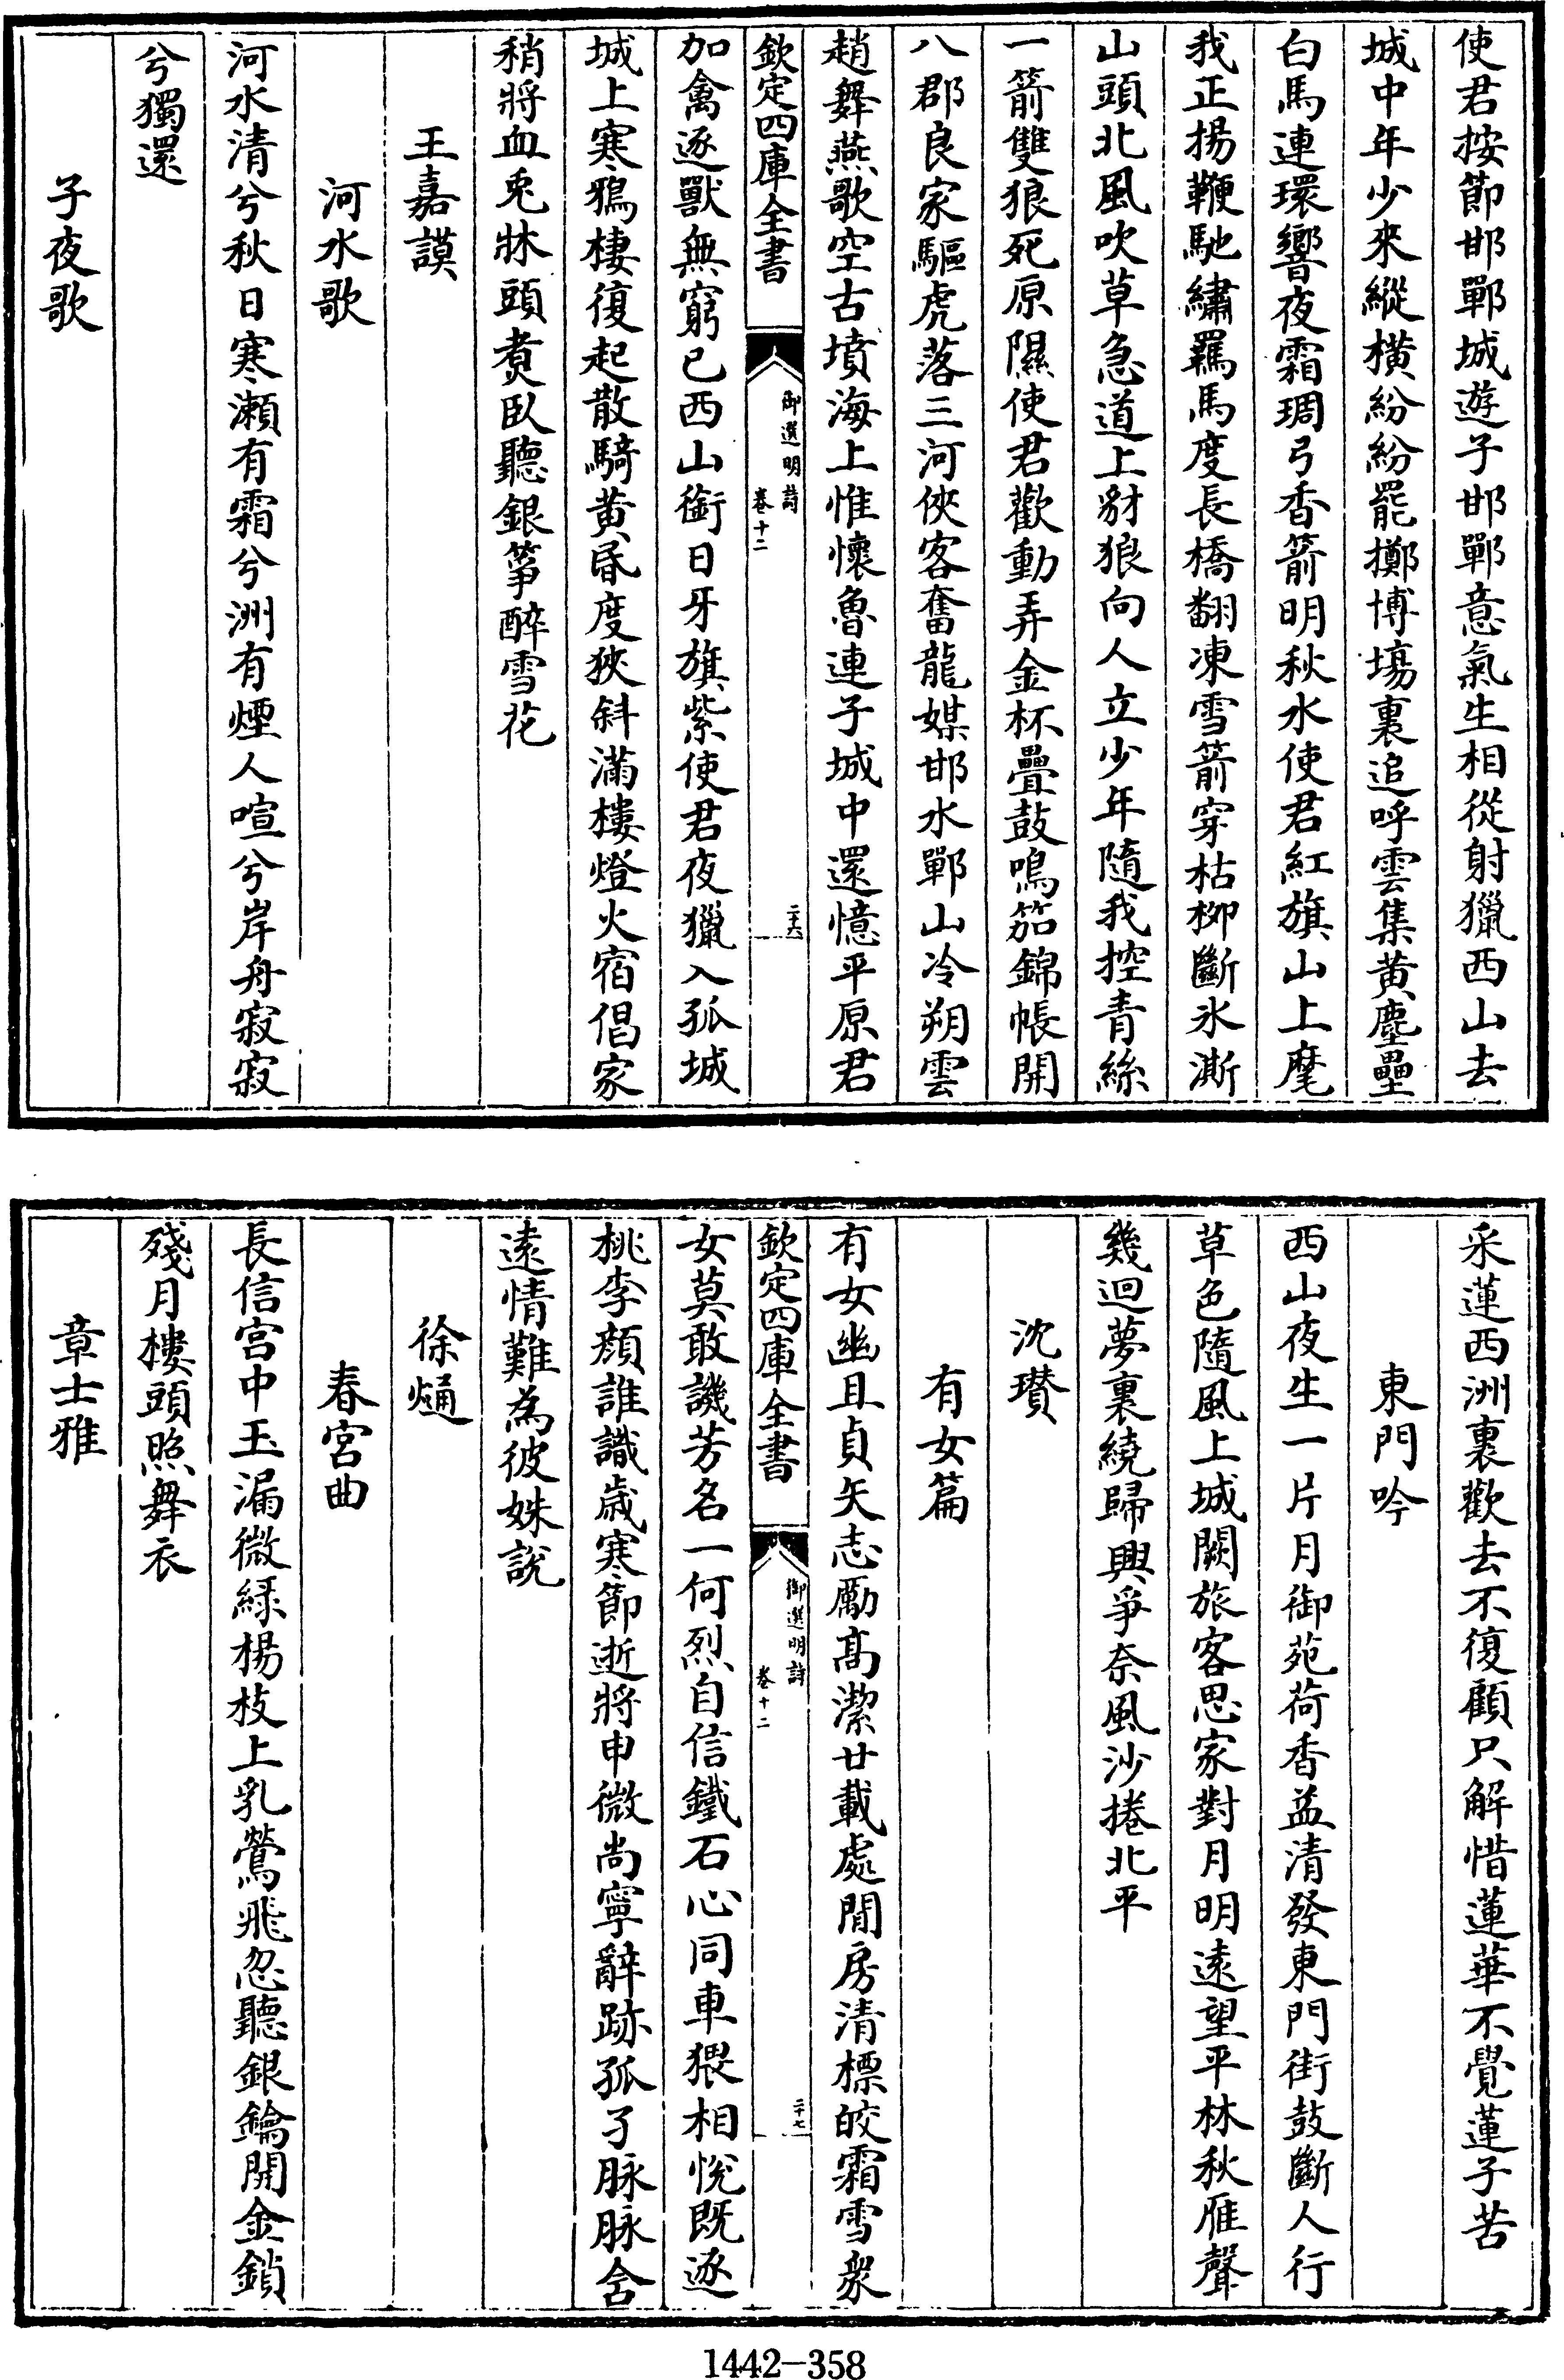 使君按節邯鄲城遊子邯鄲意氣生相從射獵西山去
城中年少來縱橫紛紛罷擲博塲裏追呼雲集黄塵壘
白馬連環響夜霜琱弓香箭明秋水使君紅旗山上麾
我正揚鞭馳繡羈馬度長橋翻凍雪箭穿枯栁斷氷澌
山頭北風吹草急道上豺狼向人立少年隨我控青絲
一箭雙狼死原隰使君歡動弄金杯疊鼓鳴笳錦帳開
八郡良家驅虎落三河俠客奮龍媒邯水鄲山冷朔雲
趙舞燕歌空古墳海上惟懷魯連子城中還憶平原君
欽定四庫全書
御選明詩
卷十二
二十六
加禽逐獸無窮已西山銜日牙旗紫使君夜獵入孤城
城上寒鴉棲復起散騎黄昬度狹斜滿樓燈火宿倡家
稍將血兎牀頭煑臥聽銀箏醉雪花
王嘉謨
河水歌
河水清兮秋日寒瀨有霜兮洲有煙人喧兮岸舟寂寂
兮獨還
子夜歌
采蓮西洲裏歡去不復顧只解惜蓮華不覺蓮子苦
東門吟
西山夜生一片月御苑荷香益清發東門街鼓斷人行
草色隨風上城闕旅客思家對月明遠望平林秋雁聲
幾迴夢裏繞歸興爭奈風沙捲北平
沈瓚
有女篇
有女幽且貞矢志勵髙潔廿載處閒房清標皎霜雪衆
欽定四庫全書
御選明詩
卷十二
二十七
女莫敢譏芳名一何烈自信鐵石心同車猥相悅既逐
桃李顔誰識歳寒節逝將申微尚寧辭跡孤孑脉脉含
遠情難為彼姝說
徐熥
春宫曲
長信宫中玉漏微緑楊枝上乳鶯飛忽聽銀鑰開金鎖
殘月樓頭照舞衣
章士雅
1442-358